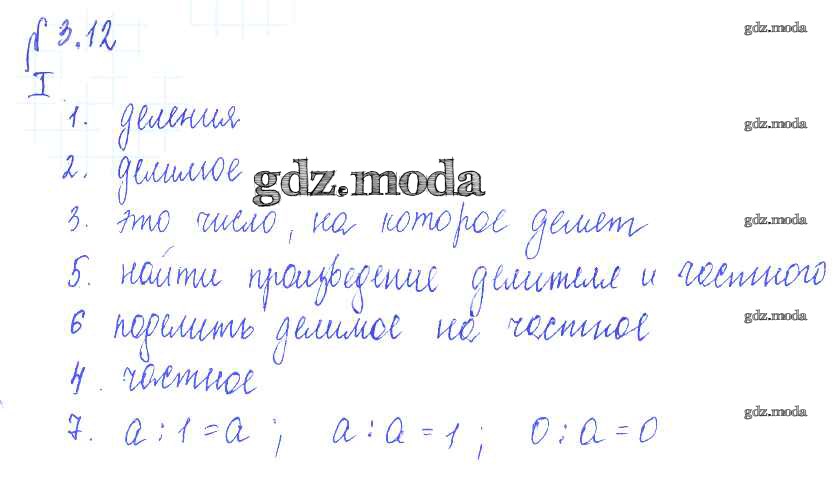 № 3.12 gdz.moda
I
1. деления gdz.moda
2. делимое gdz.moda
3. это число, на которое делят gdz.moda
5. найти произведение делителя и частного
6 поделить делимое на частное gdz.moda
4. частное
7. a : 1 = a ; a : a = 1 ; 0 : a = 0 gdz.moda